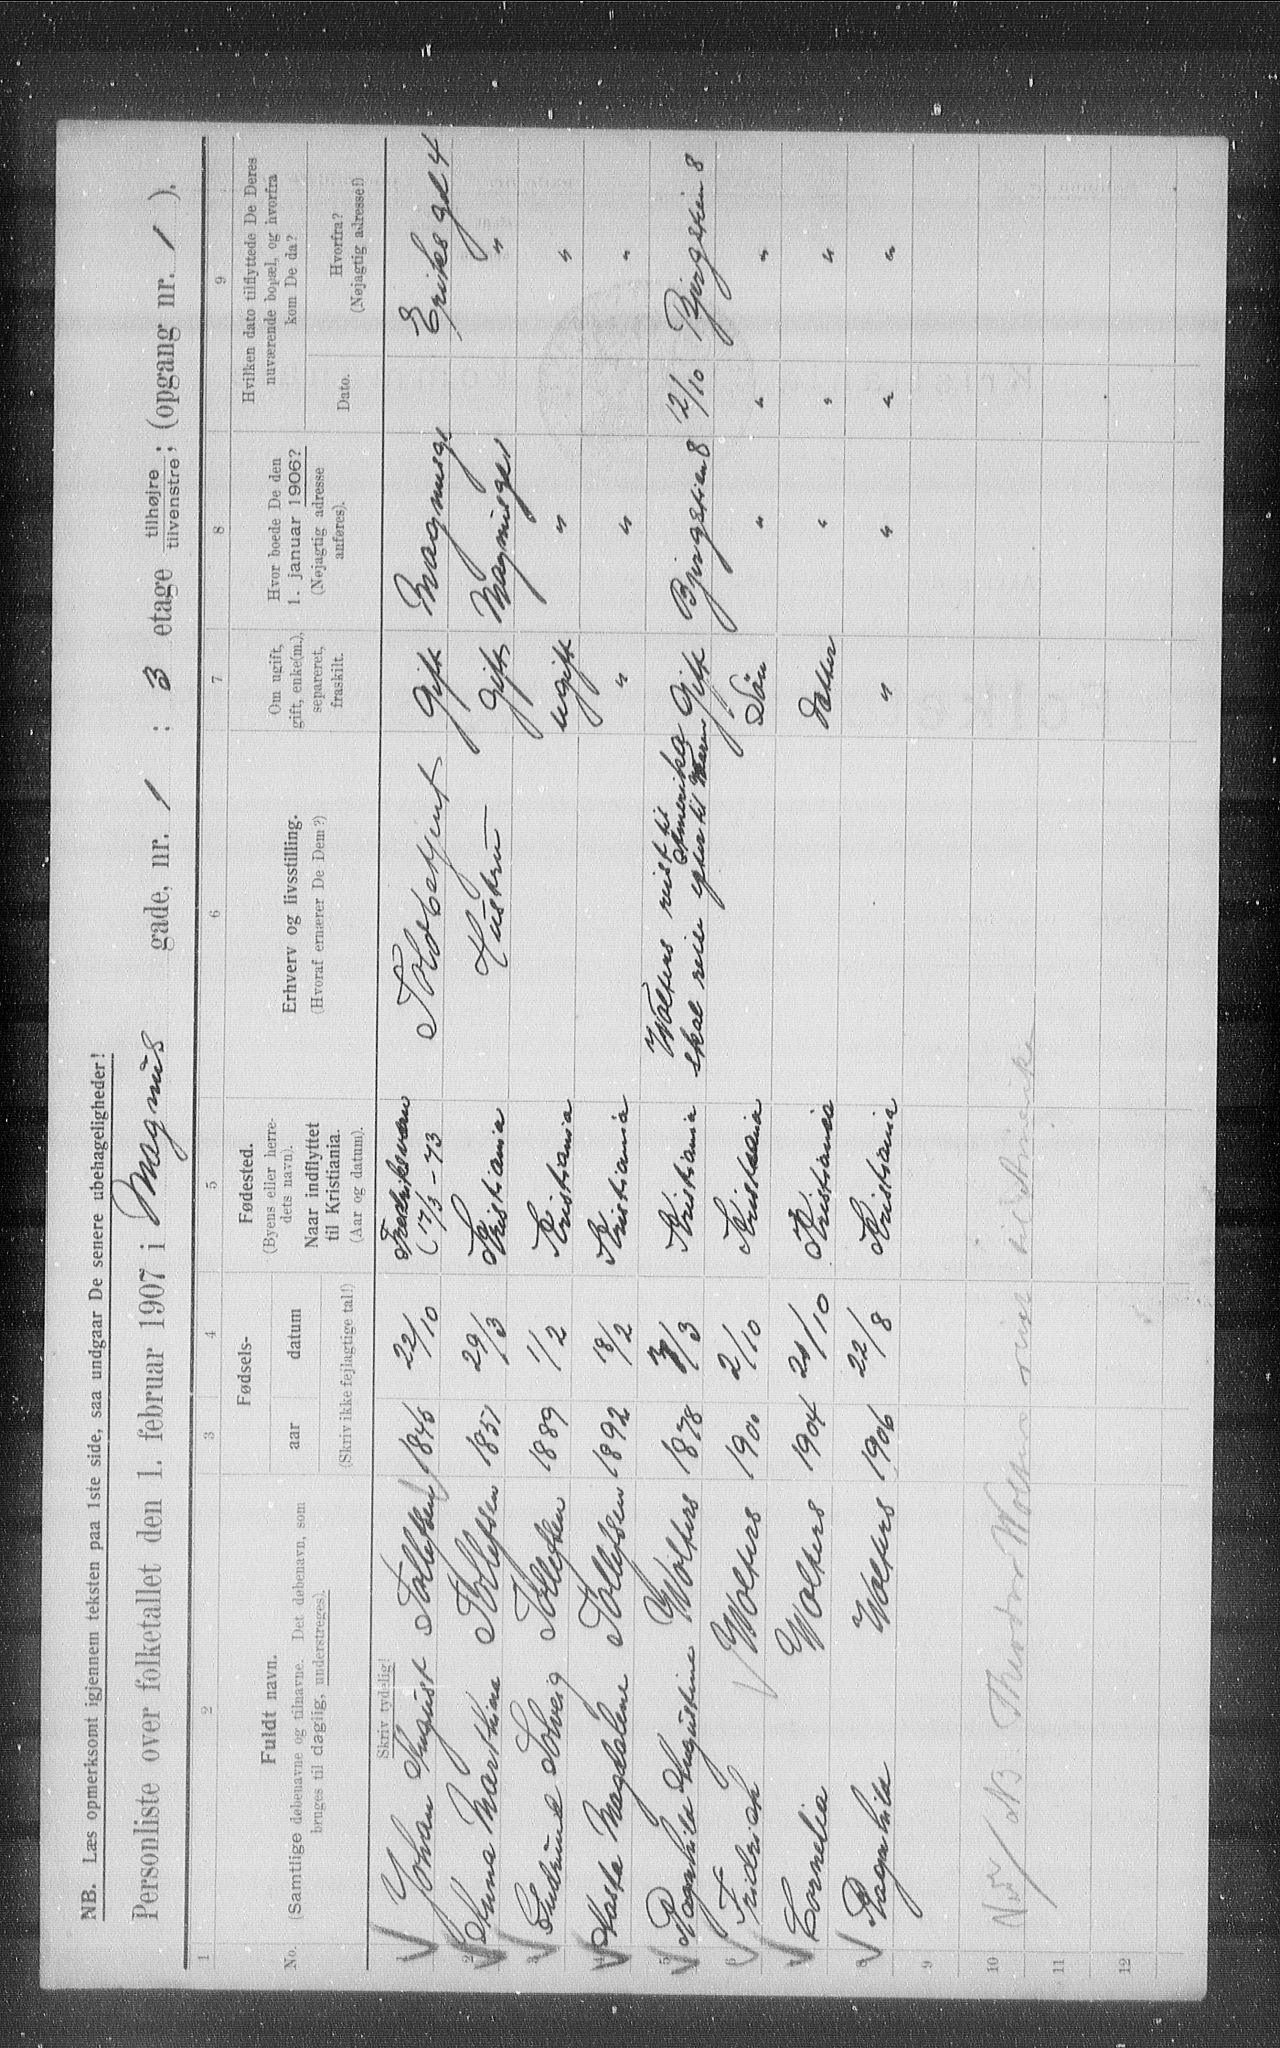 NB. Læs opmerksomt igjennem teksten paa 1ste side, saa undgaar De senere ubehageligheder!
Personliste over folketallet den 1. februar 1907 i Magnus gade, nr. 1 : 3 etage tilhøjre/tilvenstre; (opgang nr. 1 ).
1 2 3 4 5 6 7 8 9
No.
Fuldt navn.
(Samtlige døbenavne og tilnavne. Det døbenavn, som
bruges til daglig, understreges).
Fødsels-
aar datum
(Skriv ikke fejlagtige tal!)
Fødested.
(Byens eller herre-
dets navn).
Naar indflyttet
til Kristiania.
(Aar og datum).
Erhverv og livsstilling.
(Hvoraf ernærer De Dem?)
Om ugift,
gift, enke(m.),
separeret,
fraskilt.
Hvor boede De den
1. januar 1906?
(Nøjagtig adresse
anføres).
Hvilken dato tilflyttede De Deres
nuværende bopæl, og hvorfra
kom De da?
Dato.
Hvorfra?
(Nøjagtig adresse!)
Skriv tydelig!
Johan August Tollefsen 1846 22/10 Fredriksværn (17/3-73 Toldbetjent Gift Magnusgt Eriks gd 4
2 Anna Marthine Tollefsen 1851 29/3 Kristiania Hustru Gift Magnusgt "
3 Gudrun Solveig Tollefsen 1889 1/2 Kristiania ugift " "
4 Aasta Magdalene Tollefsen 1892 18/2 Kristiania " " "
5 Ragnhild Augustine Wolters 1878 /3 Kristiania Wolters reist til Amerika Gift Bjergstien 8 12/10 Bjergstien 8
skal reise efter til
6 Fridrich Wolters 1900 2/10 Kristiania Søn " " "
Cornelia Wolters 1904 20/10 Kristiania datter " " "
8 Ragnhild Wolters 1906 22/8 Kristiania " " " "
9
10 NB. Theodor Wolters reist til Amerika
11
12